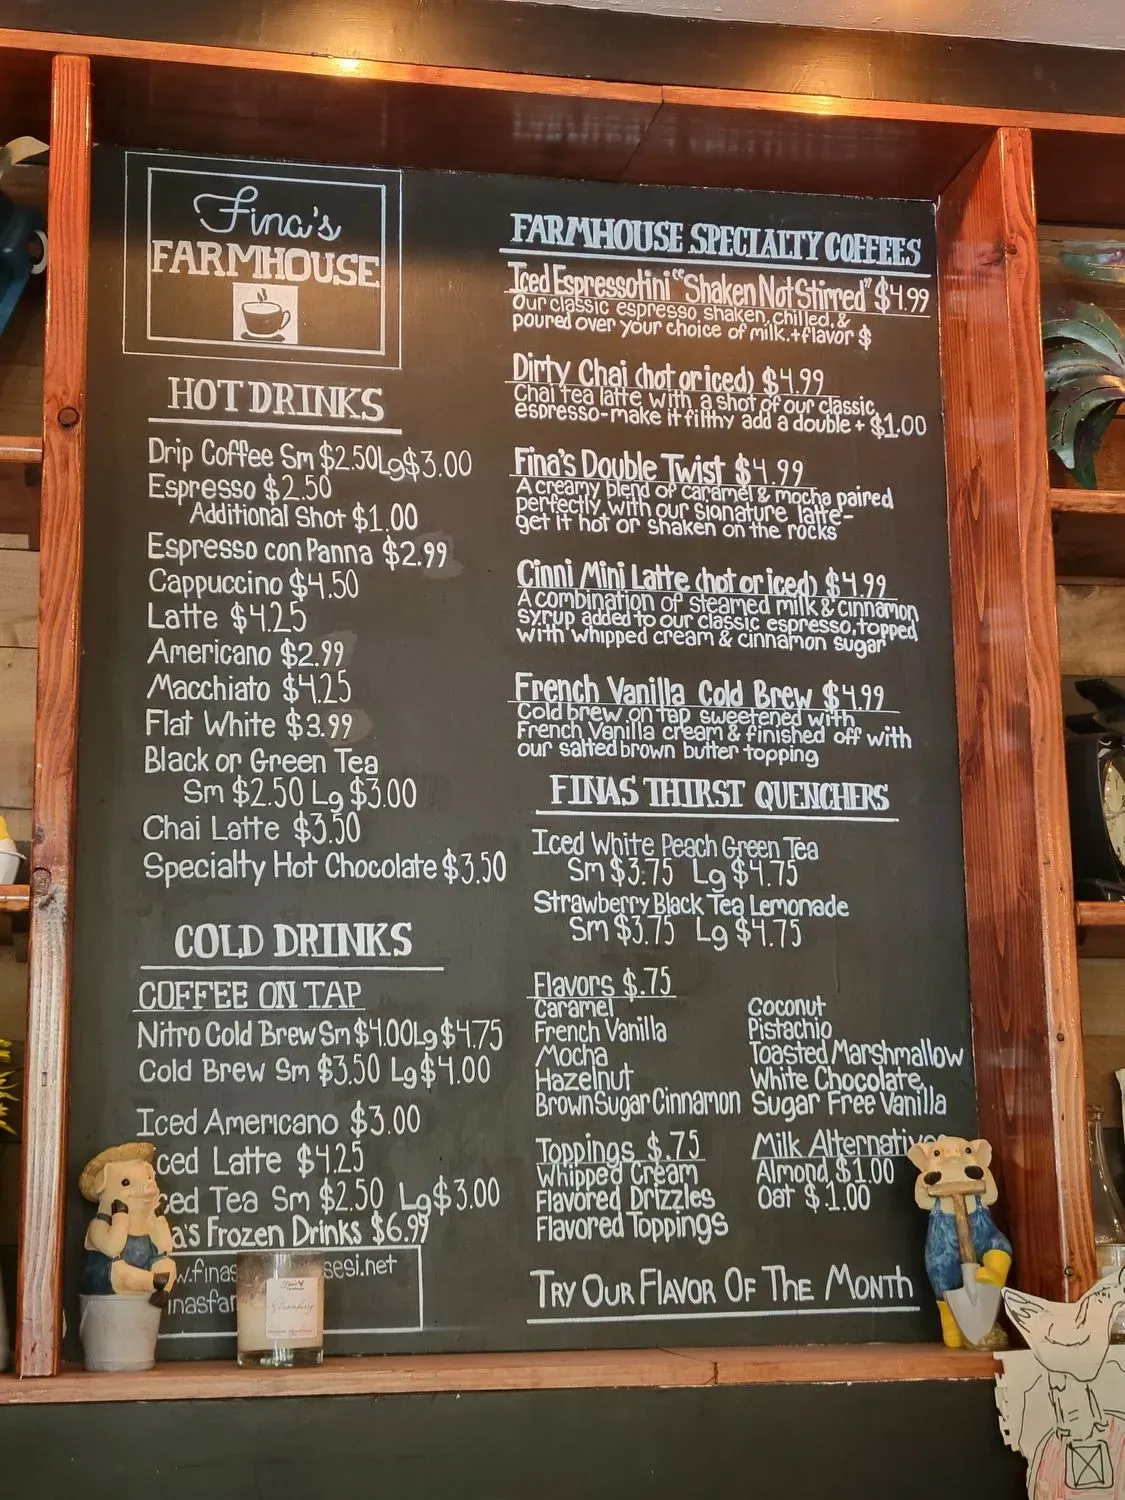 Fina's
FARMHOUSE
HOT DRINKS
Drip Coffee Sm $2.50 Lg $3.00
Espresso $2.50
Additional Shot $1.00
Espresso con Panna $2.99
Cappuccino $4.50
Latte $4.25
Americano $2.99
Macchiato $4.25
Flat White $3.99
Black or Green Tea
Sm $2.50 Lg $3.00
Chai Latte $3.50
Specialty Hot Chocolate $3.50
COLD DRINKS
COFFEE ON TAP
Nitro Cold Brew Sm $4.00 Lg $4.75
Cold Brew Sm $3.50 Lg $4.00
Iced Americano $3.00
ced Latte $4.25
ced Tea Sm $2.50 Lg $3.00
a's Frozen Drinks $6.99
w.finas sesi.net
inasfar
FARMHOUSE SPECIALTY COFFEES
Iced Espressotini "Shaken Not Stirred" $4.99
Our classic espresso, shaken, chilled, &
poured over your choice of milk.+flavor $
Dirty Chai (hot or iced) $4.99
Chai tea latte with a shot of our classic
espresso-make it filthy add a double + $1.00
Fina's Double Twist $4.99
A creamy blend of caramel & mocha paired
perfectly with our signature latte-
get it hot or shaken on the rocks
Cinni Mini Latte (hot or iced) $4.99
A combination of steamed milk & cinnamon
syrup added to our classic espresso, topped
with whipped cream & cinnamon sugar
French Vanilla Cold Brew $4.99
Cold brew on tap sweetened with
French Vanilla cream & finished off with
our salted brown butter topping
FINAS THIRST QUENCHERS
Iced White Peach Green Tea
Sm $3.75 Lg $4.75
Strawberry Black Tea Lemonade
Sm $3.75 Lg $4.75
Flavors $.75
Caramel
French Vanilla
Mocha
Hazelnut
Brown Sugar Cinnamon
Coconut
Pistachio
Toasted Marshmallow
White Chocolate
Sugar Free Vanilla
Toppings $.75
Whipped Cream
Flavored Drizzles
Flavored Toppings
Milk Alternative
Almond $1.00
Oat $1.00
TRY OUR FLAVOR OF THE MONTH